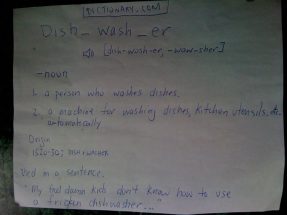 DICTIONARY.COM
Dish_wash_er
[dish-wosh-er, -waw-sher]
-noun
1. a person who washes dishes.
2. a machine for washing dishes, kitchen utensils, etc.
automatically
Origin
1520-30; DISH + WASHER
Used in a sentence.
"My god damn kids don't know how to use
a fricken dishwasher..."